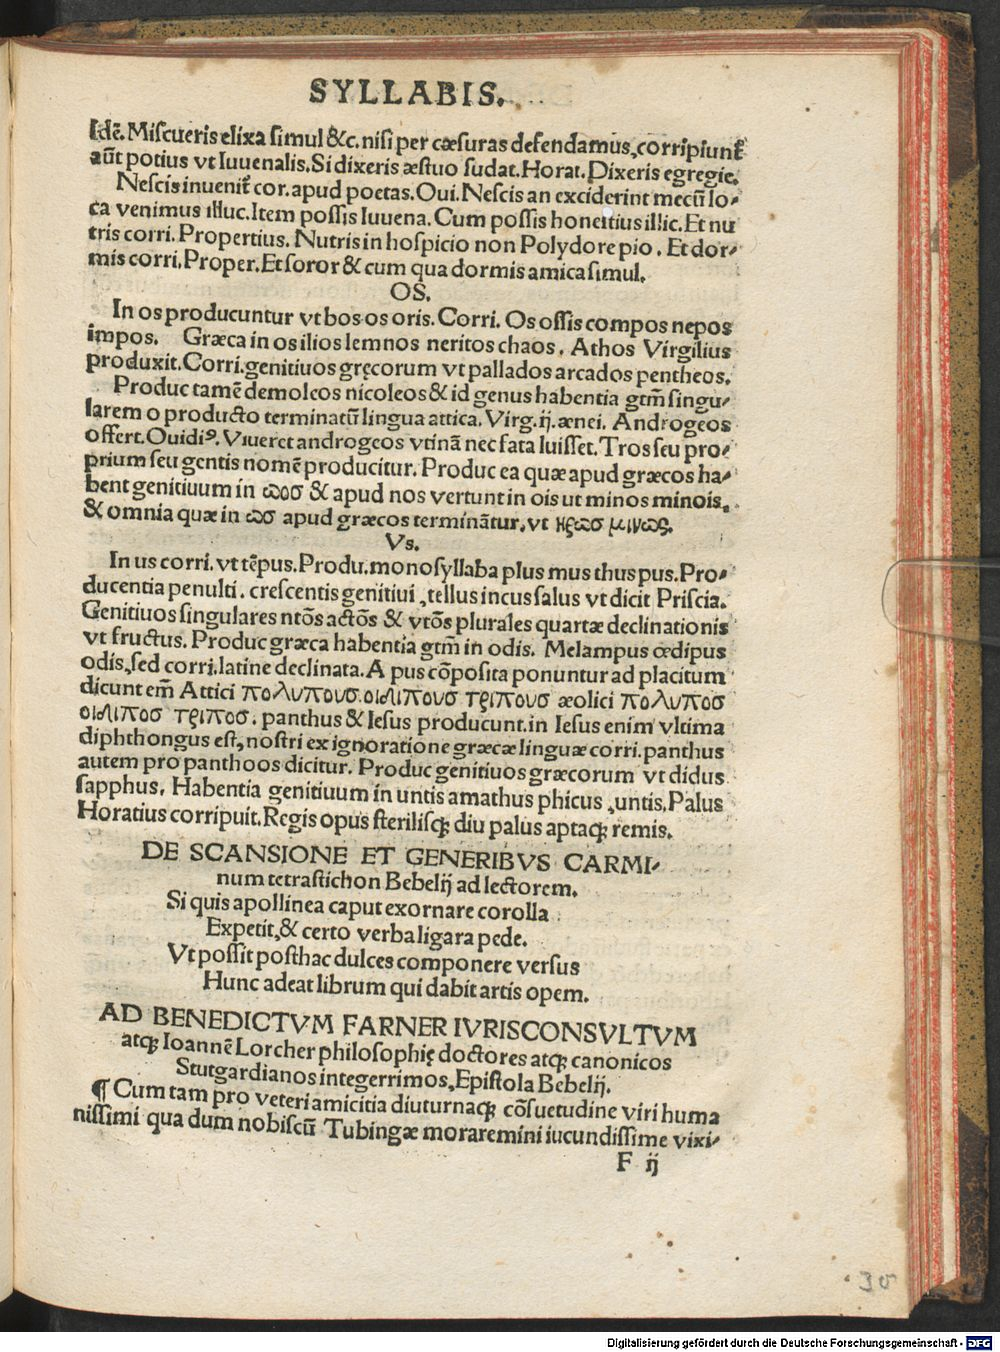 SYLLABIS.
Idẽ. Miscueris elixa simul &c. nisi per cæsuras defendamus, corripiunt᷑
aũt potius vt Iuuenalis. Si dixeris æstuo sudat. Horat. Dixeris egregie.
Nescis inuenit᷑ cor. apud poetas. Oui. Nescis an exciderint mecũ lo-
ca venimus illuc. Item possis Iuuena. Cum possis honestius illic. Et nu
tris corri. Propertius. Nutris in hospicio non Polydore pio. Et dor-
mis corri. Proper. Et soror & cum qua dormis amica simul.
OS.
In os producuntur vt bos os oris. Corri. Os ossis compos nepos
impos. Græca in os ilios lemnos neritos chaos. Athos Virgilius
produxit. Corri. genitiuos gręcorum vt pallados arcados pentheos.
Produc tamẽ demoleos nicoleos & id genus habentia gtm̃ singu-
larem o producto terminatũ lingua attica. Virg. ij. ænei. Androgeos
offert. Ouidiꝰ. Viueret androgeos vtinã nec fata luisset. Tros seu pro-
prium seu gentis nomẽ producitur. Produc ea quæ apud græcos ha-
bent genitiuum in ωοσ & apud nos vertunt in ois ut minos minois.
& omnia quæ in ωσ apud græcos terminãtur, vt ηρωσ μινως.
Vs.
In us corri. vt tẽpus. Produ. monosyllaba plus mus thus pus. Pro-
ducentia penulti. crescentis genitiui, tellus incus salus vt dicit Priscia.
Genitiuos singulares ntõs actõs & vtõs plurales quartæ declinationis
vt fructus. Produc græca habentia gtm̃ in odis. Melampus œdipus
odis, sed corri. latine declinata. A pus cõposita ponuntur ad placitum
dicunt em̃ Attici πολυπουσ. οιδιπουσ τριπουσ æolici πολυποσ
οιδιποσ τριποσ. panthus & Iesus producunt. in Iesus enim vltima
diphthongus est, nostri ex ignoratione græcæ linguæ corri. panthus
autem pro panthoos dicitur. Produc genitiuos græcorum vt didus
sapphus. Habentia genitiuum in untis amathus phicus, untis. Palus
Horatius corripuit. Regis opus sterilisqꝫ diu palus aptaqꝫ remis.
DE SCANSIONE ET GENERIBVS CARMI-
num tetrastichon Bebelij ad lectorem.
Si quis apollinea caput exornare corolla
Expetit, & certo verba ligara pede.
Vt possit posthac dulces componere versus
Hunc adeat librum qui dabit artis opem.
AD BENEDICTVM FARNER IVRISCONSVLTVM
atqꝫ Ioannẽ Lorcher philosophię doctores atqꝫ canonicos
Stutgardianos integerrimos, Epistola Bebelij.
¶ Cum tam pro veteri amicitia diuturnaqꝫ cõsuetudine viri huma
nissimi qua dum nobiscũ Tubingæ moraremini iucundissime vixi-
F ij
30
Digitalisierung gefördert durch die Deutsche Forschungsgemeinschaft - DFG